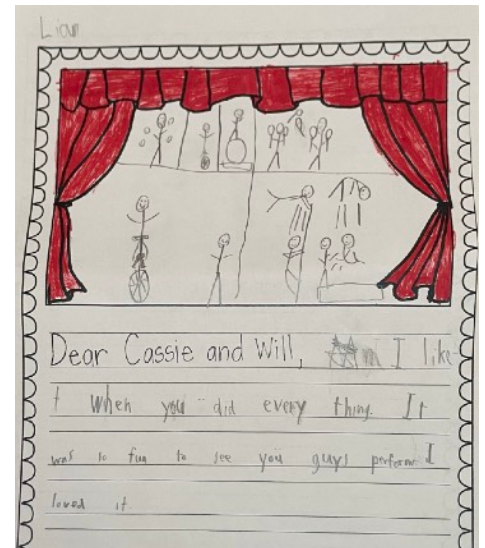 Lian
Dear Cassie and Will, I like
t when you did every thing. It
was so fun to see you guys perform I
loved it.